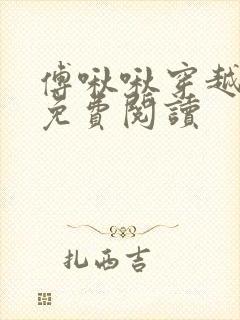 傅啾啾穿越
免費閱讀
扎西吉